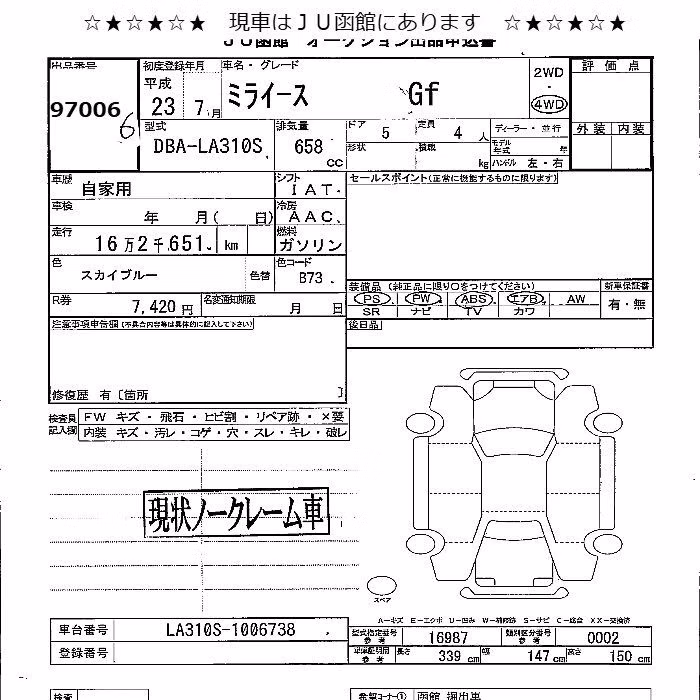 ☆★☆★☆★　現車はＪＵ函館にあります　☆★☆★☆★
ＪＵ函館　オークション出品申込書
出品番号 97006 6
初度登録年月 平成 23 7月
車名・グレード ミライース Gf
2WD・4WD
評価点
型式 DBA-LA310S
排気量 658 cc
ドア 5 定員 4 人
ディーラー・並行
形状 積載 kg
モデル年式 年
ハンドル 左・右
外装 内装
車歴 自家用
シフト IAT
セールスポイント(正常に機能するものに限ります)
車検 年 月( 日)
冷房 AAC
走行 16万2千651 km
燃料 ガソリン
色 スカイブルー 色替
色コード B73
装備品 (純正品に限り○をつけてください)
新車保証書
PS PW ABS エアB AW
有・無
SR ナビ TV カワ
R券 7,420円
名変通知期限 月 日
後日品
注意事項申告欄(不具合内容等は具体的に記入して下さい)
修復歴 有〔箇所 〕
検査員記入欄
FW キズ・飛石・ヒビ割・リペア跡・×要
内装 キズ・汚レ・コゲ・穴・スレ・キレ・破レ
現状ノークレーム車
スペア
A-キズ E-エクボ U-凹み W-補修跡 S-サビ C-腐蝕 XX-交換済
車台番号 LA310S-1006738
登録番号
型式指定番号 参考 16987
類別区分番号 参考 0002
車庫証明用 参考 長さ 339 cm 幅 147 cm 高さ 150 cm
検査
希望コーナー① 函館 掘出車